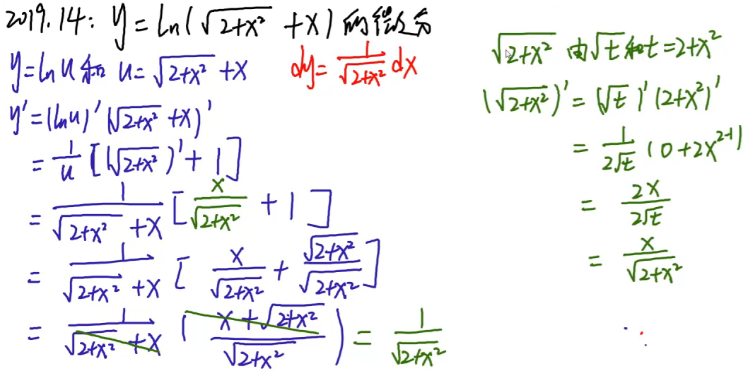 2019.14: y=ln(√(2+x²) +x) 的微分
y=ln u 和 u=√(2+x²) +x
dy=1/√(2+x²) dx
y'=(ln u)'(√(2+x²) +x)'
=1/u [(√(2+x²))'+1]
=1/(√(2+x²) +x) [x/√(2+x²) +1]
=1/(√(2+x²) +x) [x/√(2+x²) + √(2+x²)/√(2+x²)]
=1/(√(2+x²) +x) ((x+√(2+x²))/√(2+x²))=1/√(2+x²)
√(2+x²) 由√t和t=2+x²
(√(2+x²))'=(√t)'(2+x²)'
=1/(2√t) (0+2x²⁻¹)
=2x/(2√t)
=x/√(2+x²)